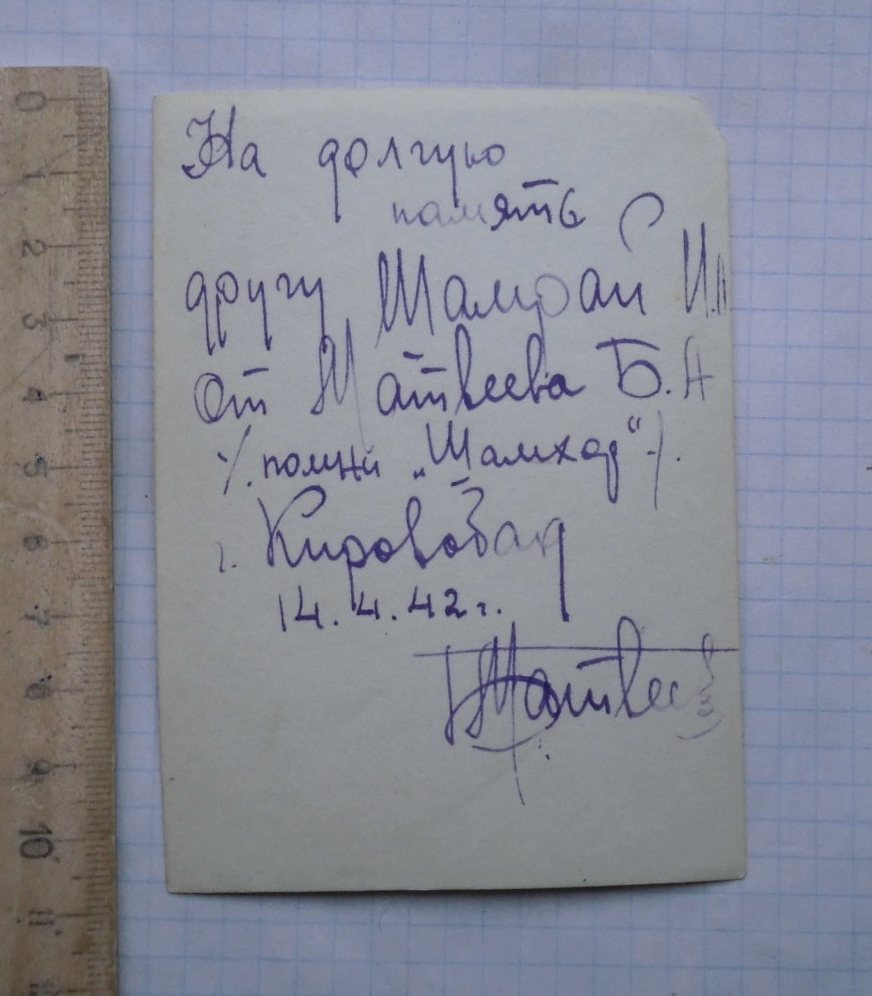 На долгую
память
другу Шамрай И.
От Матвеева Б.А
/. помни „Шамхор" /.
г. Кировобад
14.4.42 г.
БМатвеев
0
1
2
3
4
5
6
7
8
9
10
11